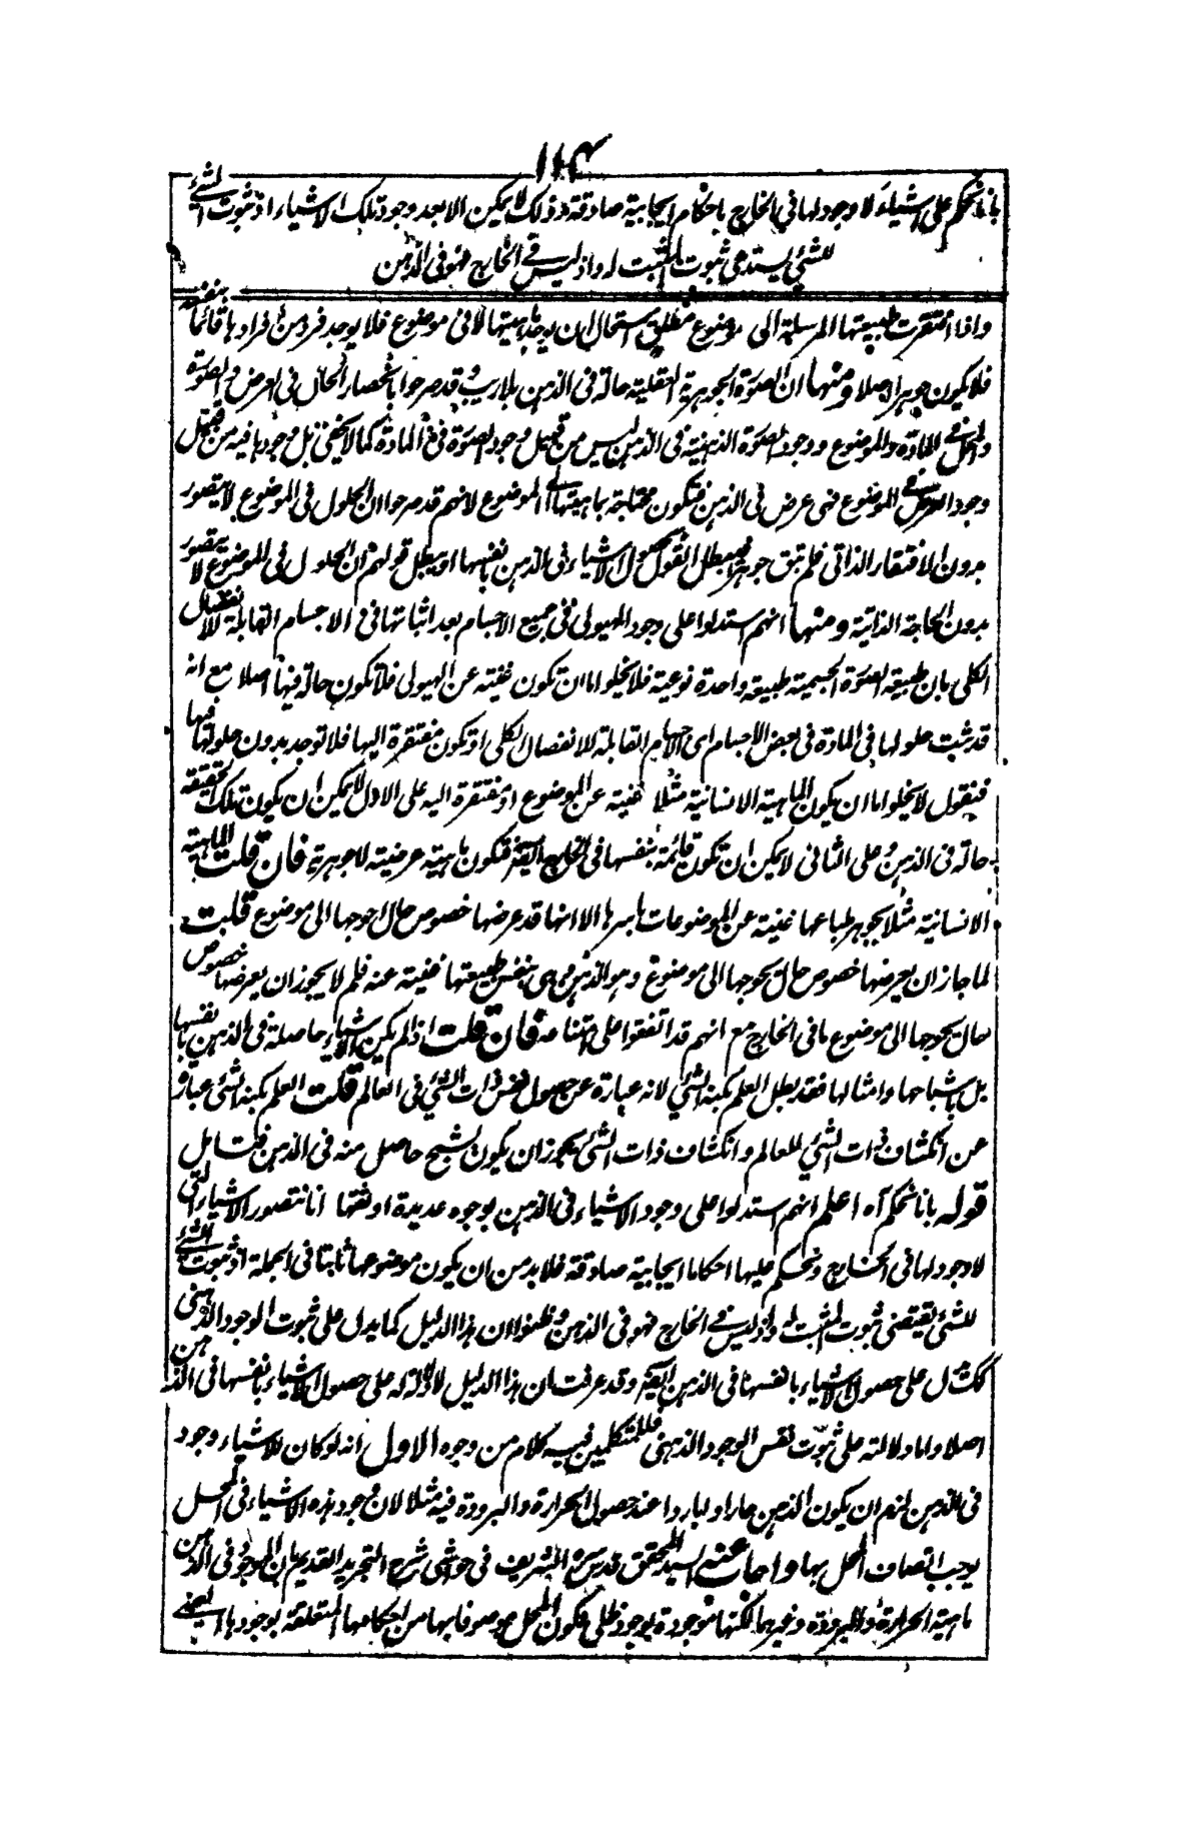 ١١٤
بانا نحكم على اشياء لا وجود لها في الخارج باحكام ايجابية صادقة وذلك لا يمكن الا بعد وجود تلك الاشياء اذ ثبوت الشئ
للشئ يستدعي ثبوت المثبت له واذ ليس في الخارج فهو في الذهن
واذا افتقرت طبيعتها المرسلة الى موضوع مطلق استحال ان يوجد ماهيتها لا في موضوع فلا يوجد فرد من افرادها قائما بنفسه
فلا يكون جوهرا اصلا ومنها ان الصورة الجوهرية العقلية حالة في الذهن بلا ريب وقد صرحوا بانحصار الحال في العرض والصورة
والمحل في المادة والموضوع ووجود الصورة الذهنية في الذهن ليس من قبيل وجود الصورة في المادة كما لا يخفى بل وجودها فيه من قبيل
وجود العرض في الموضوع فهى عرض في الذهن فتكون محتاجة بماهيتها الى الموضوع لانهم قد صرحوا ان الحلول في الموضوع لا يتصور
بدون الافتقار الذاتي فلم تبق جوهرا فيبطل القول بحصول الاشياء في الذهن بانفسها او يبطل قولهم ان الحلول في الموضوع لا يتصور
بدون الحاجة الذاتية ومنها انهم استدلوا على وجود الهيولى في جميع الاجسام بعد اثباتها في الاجسام القابلة للانفصال
الكلى بان طبيعة الصورة الجسمية طبيعة واحدة نوعية فلا يخلو اما ان تكون غنية عن الهيولى فلا تكون حالة فيها اصلا مع انه
قد ثبت حلولها في المادة في بعض الاجسام اى الاجسام القابلة للانفصال الكلى او تكون مفتقرة اليها فلا توجد بدون حلولها فيها
فنقول لا يخلو اما ان يكون الماهية الانسانية مثلا غنية عن الموضوع او مفتقرة اليه على الاول لا يمكن ان يكون تلك الحقيقة
حالة في الذهن وعلى الثانى لا يمكن ان تكون قائمة بنفسها في الخارج ايضا فتكون ماهية عرضية لا جوهرية فان قلت الماهية
الانسانية مثلا بجوهر طباعها غنية عن الموضوعات باسرها الا انها قد عرضها خصوص حال احوجها الى موضوع قلت
لما جاز ان يعرضها خصوص حال يحوجها الى موضوع وهو الذهن وهى بنفس طبيعتها غنية عنه فلم لا يجوز ان يعرضها خصوص
حال يحوجها الى موضوع ما في الخارج مع انهم قد اتفقوا على امتناعه فان قلت اذا لم يكن الاشياء حاصلة في الذهن بانفسها
بل باشباحها وامثالها فقد بطل العلم بكنه الشئ لانه عبارة عن حصول نفس ذات الشئ في العالم قلت العلم بكنه الشئ عبارة
عن انكشاف ذات الشئ للعالم وانكشاف ذات الشئ يجوز ان يكون بشبح حاصل منه في الذهن فتأمل
قوله بانا نحكم آه اعلم انهم استدلوا على وجود الاشياء في الذهن بوجوه عديدة اوثقها انا نتصور الاشياء التى
لا وجود لها في الخارج ونحكم عليها احكاما ايجابية صادقة فلا بد من ان يكون موضوعها ثابتا في الجملة اذ ثبوت الشئ
للشئ يقتضى ثبوت المثبت له واذ ليس في الخارج فهو في الذهن وظنوا ان هذا الدليل كما يدل على ثبوت الوجود الذهنى
كك يدل على حصول الاشياء بانفسها في الذهن ايضا وقد عرفت ان هذا الدليل لا دلالة له على حصول الاشياء بانفسها في الذهن
اصلا واما دلالته على ثبوت نفس الوجود الذهنى فللمتكلمين فيه كلام من وجوه الاول انه لو كان للاشياء وجود
في الذهن لزم ان يكون الذهن حارا وباردا عند حصول الحرارة والبرودة فيه مثلا لان وجود هذه الاشياء في المحل
يوجب اتصاف المحل بها واجاب عنه السيد المحقق قدس سره الشريف في حواشى شرح التجريد القديم بان الموجود في الذهن
ماهية الحرارة والبرودة وغيرهما لكنها موجودة بوجود ظلى وكون المحل موصوفا بها من احكامها المتعلقة بوجودها العينى